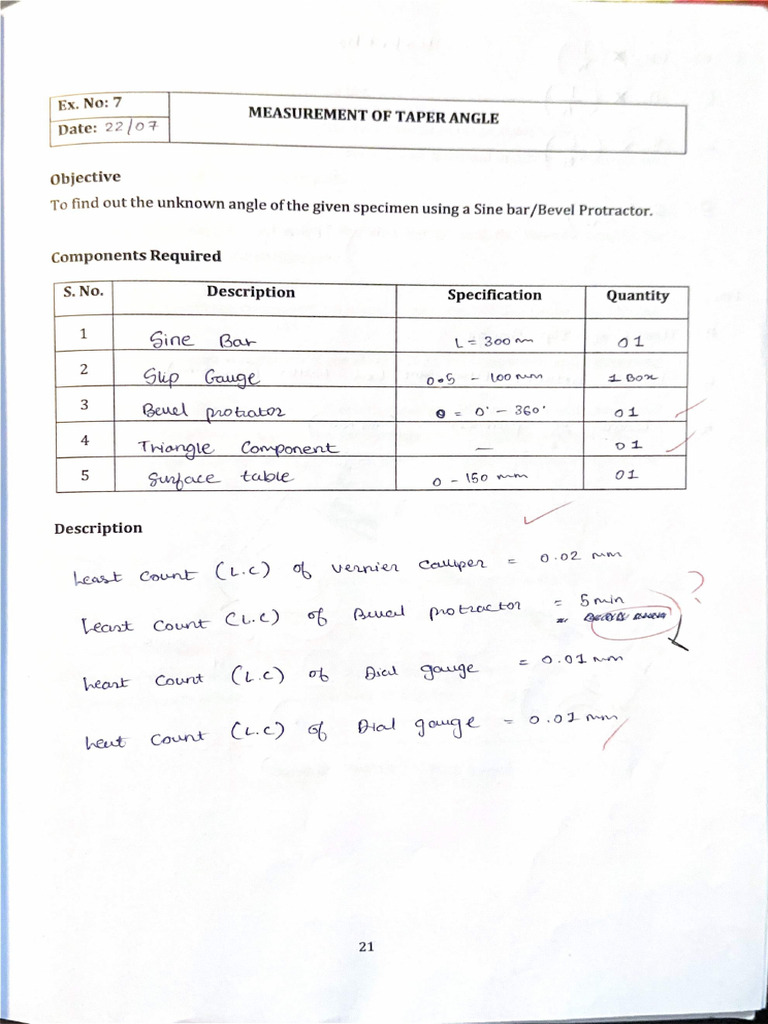 Ex. No: 7
MEASUREMENT OF TAPER ANGLE
Date: 22/07
Objective
To find out the unknown angle of the given specimen using a Sine bar/Bevel Protractor.
Components Required
S. No. Description Specification Quantity
1 Sine Bar L = 300 m 01
2 Slip Gauge 0.5 - 100 mm 1 Box
3 Bevel protrator θ = 0° - 360° 01
4 Triangle Component — 01
5 Surface table 0 - 150 mm 01
Description
Least Count (L.C) of Vernier Calliper = 0.02 mm
Least Count (L.C) of Bevel protractor = 5 min
=
?
Least Count (L.C) of Dial gauge = 0.01 mm
Leut Count (L.C) of Dial gauge = 0.01 mm
21